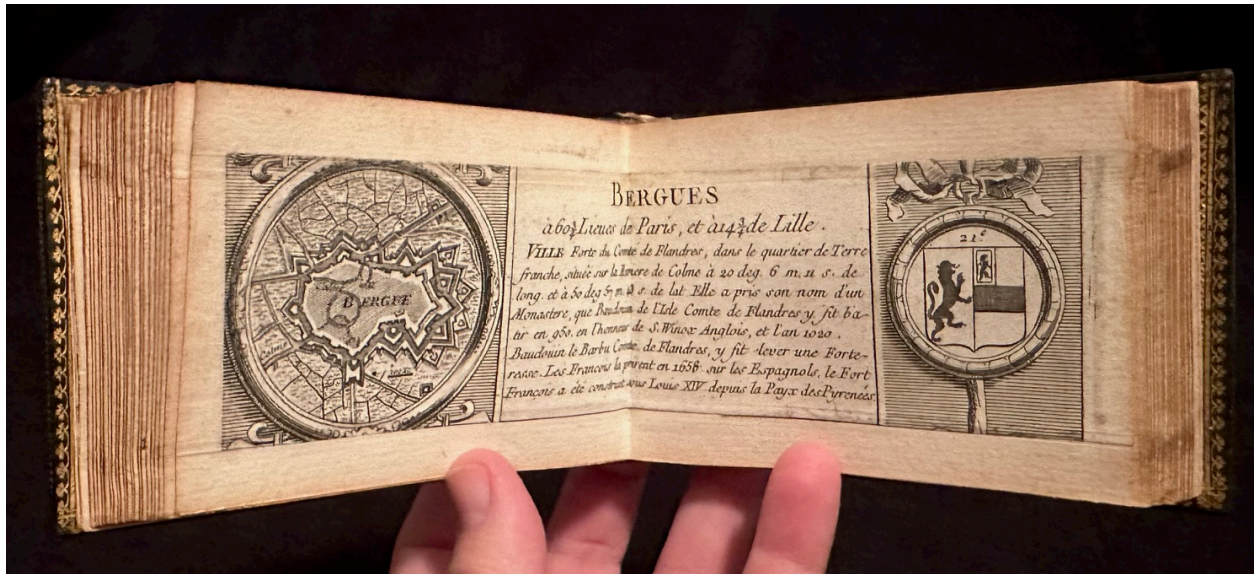 BERGUE
Colme
BERGUES
à 60¾ Lieues de Paris, et à 14¾ de Lille.
VILLE Forte du Comté de Flandres, dans le quartier de Terre
franche, située sur la Riviere de Colme à 20 deg. 6 m. 11 s. de
long. et à 50 deg. de lat. Elle a pris son nom d'un
Monastere, que Baudouin de l'Isle Comte de Flandres y fit bâ-
tir en 960. en l'honneur de S. Winox Anglois, et l'an 1020.
Baudouin le Barbu Comte de Flandres, y fit élever une Forte-
resse. Les François la prirent en 1658 sur les Espagnols, le Fort
François a été construit sous Louis XIV. depuis la Payx des Pyrenées.
21.e